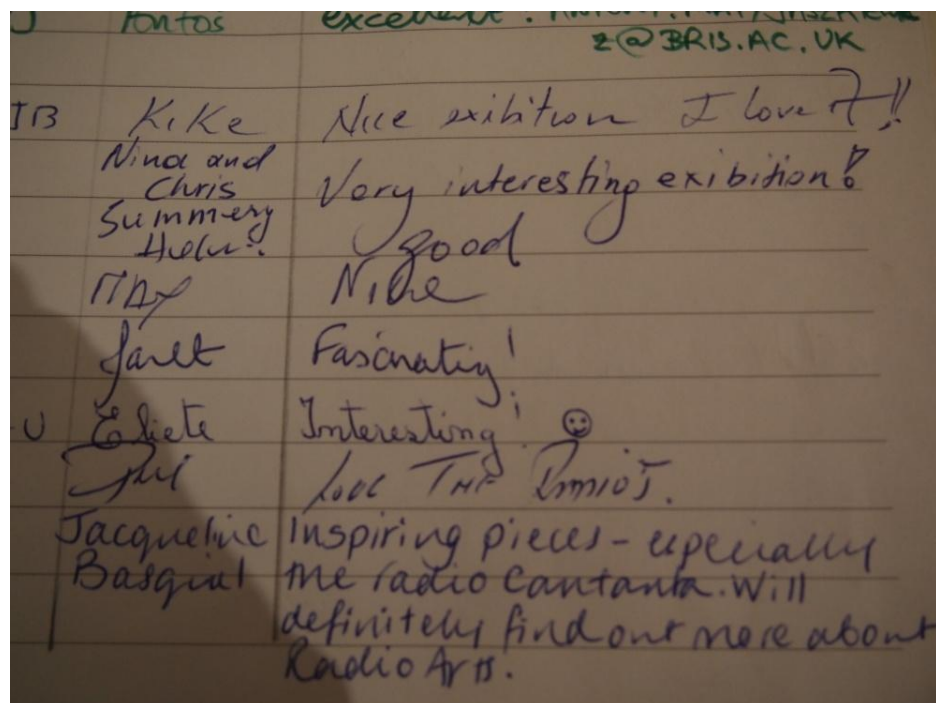 Pontos excellent.
z@BRIS.AC.UK
IB KiKe Nice exibition I love it!!
Nina and
Chris Very interesting exibition!
Summery good
Nice
Janet Fascinatig!
U Eliete Interesting! ☺
Love The Radios.
Jacqueline Inspiring pieces - especially
Basquial the radio Cantanta. Will
definitely find out more about
Radio Arts.